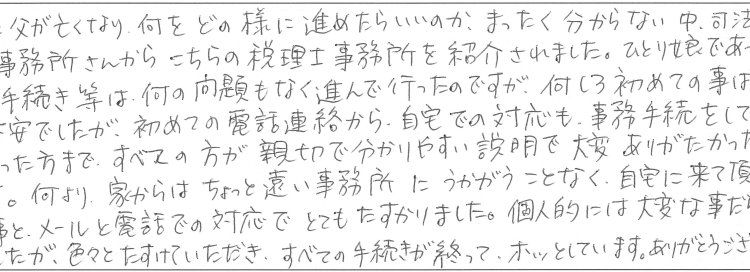 父が亡くなり、何をどの様に進めたらいいのか、まったく分からない中、司法
事務所さんからこちらの税理士事務所を紹介されました。ひとり娘であっ
手続き等は、何の問題もなく進んで行ったのですが、何しろ初めての事は
安でしたが、初めての電話連絡から、自宅での対応も、事務手続をして
った方まで、すべての方が親切で分かりやすい説明で大変ありがたかった
。何より、家からはちょっと遠い事務所にうかがうことなく、自宅に来て頂
事と、メールと電話での対応でとてもたすかりました。個人的には大変な事だ
たが、色々とたすけていただき、すべての手続きが終って、ホッとしています。ありがとうござ